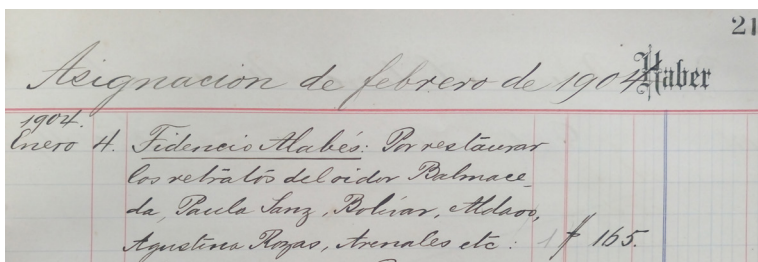 21
Asignacion de febrero de 1904 Haber
1904.
Enero 4. Fidencio Alabés: Por restaurar
los retratos del oidor Balmace-
da, Paula Sanz, Bolívar, Aldao,
Agustina Rozas, Arenales etc: 1 $ 165.